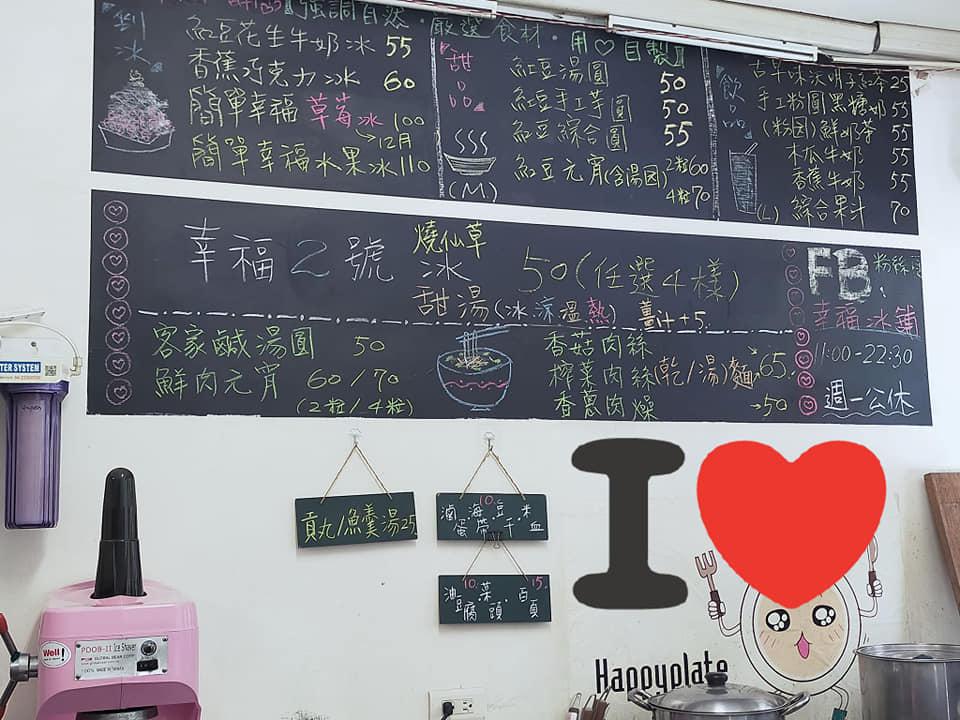 強調自然・嚴選食材・用♡自製
剉冰
紅豆花生牛奶冰 55
香蕉巧克力冰 60
簡單幸福草莓冰 100
→12月
簡單幸福水果冰 110
甜品
(M)
紅豆湯圓 50
紅豆手工芋圓 50
紅豆綜合圓 55
紅豆元宵(含湯圓) 2粒60
4粒70
飲品
(L)
古早味決明子紅茶 25
手工粉圓黑糖奶 55
(粉圓)鮮奶茶 55
木瓜牛奶 55
香蕉牛奶 55
綜合果汁 70
幸福2號
燒仙草
冰
甜湯(冰涼溫熱)
50(任選4樣)
薑汁+5
客家鹹湯圓 50
鮮肉元宵 60/70
(2粒/4粒)
香菇肉絲
榨菜肉絲(乾/湯)麵 65
香蔥肉燥 →50
FB粉絲
幸福冰舖
11:00-22:30
週一公休
貢丸/魚羹湯25
10.
滷蛋.海帶.豆干.米血
10. 15.
油豆腐.菜頭.百頁
I
Happyplate
WATER SYSTEM
Well!
PDOB-II Ice Shaver